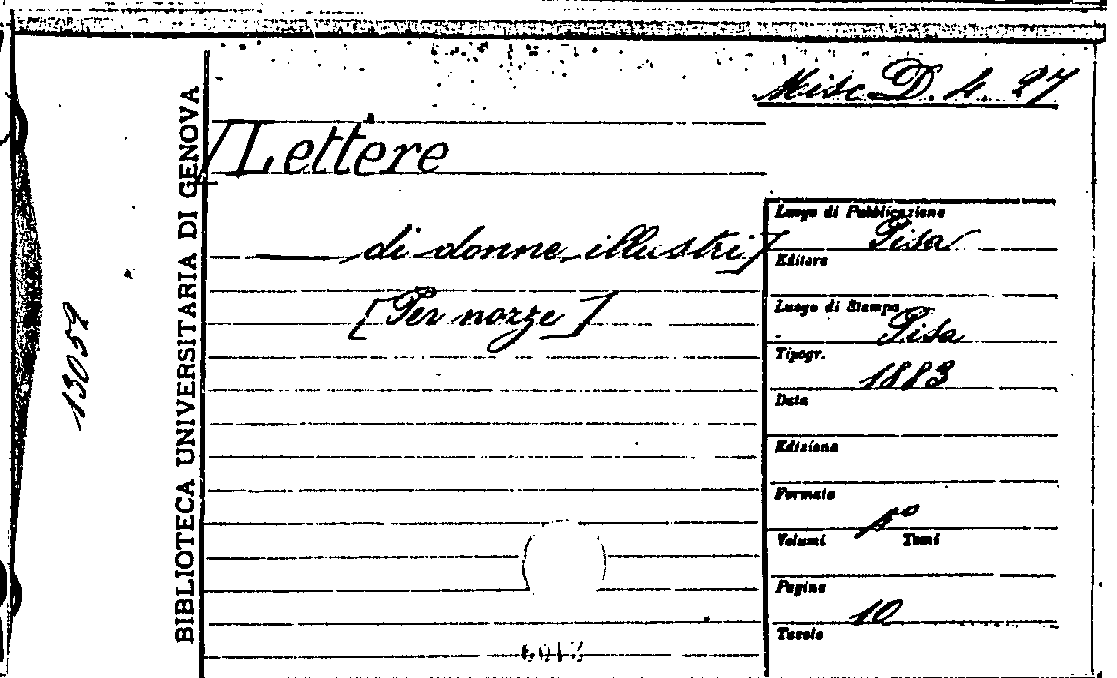 Misc D. 4. 27
[Lettere
di donne illustri]
[Per nozze]
BIBLIOTECA UNIVERSITARIA DI GENOVA
13059
Luogo di Pubblicazione
Pisa
Editore
Luogo di Stampa
Pisa
Tipogr.
1883
Data
Edizione
Formato
Volumi Tomi
Pagine
10
Tavole